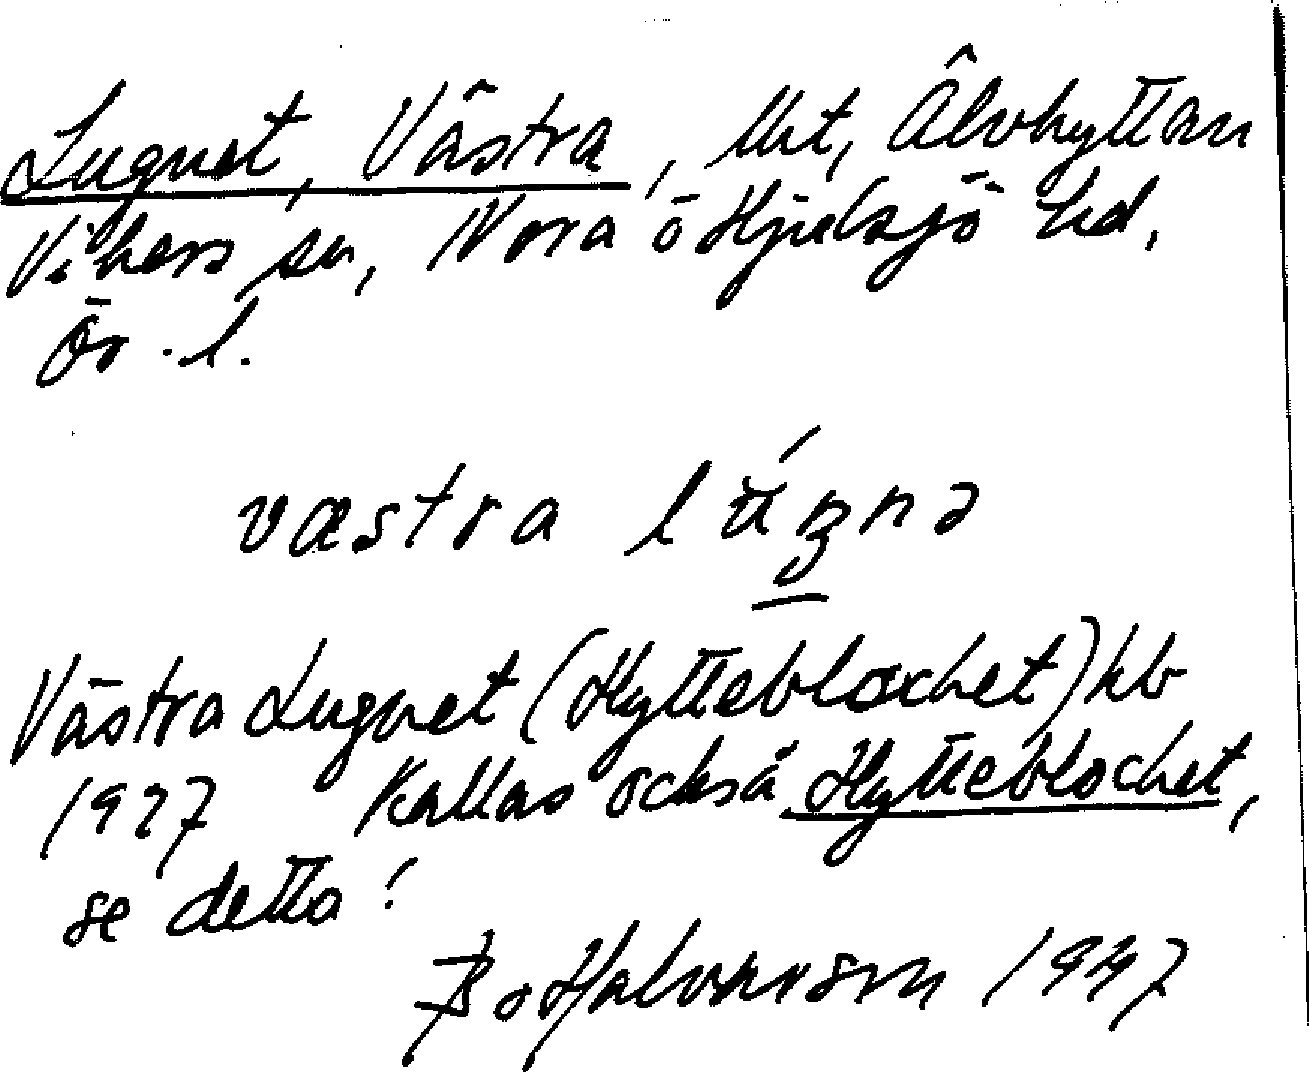 Lugnet, Västra, lht, Älvhyttan
Vikers sn, Nora o Hjulsjö hd,
Ör. l.
væstra lúŋnə
Västra Lugnet (Hytteblocket) kb
1927 Kallas också Hytteblocket,
se detta!
Bo Halvarson 1947